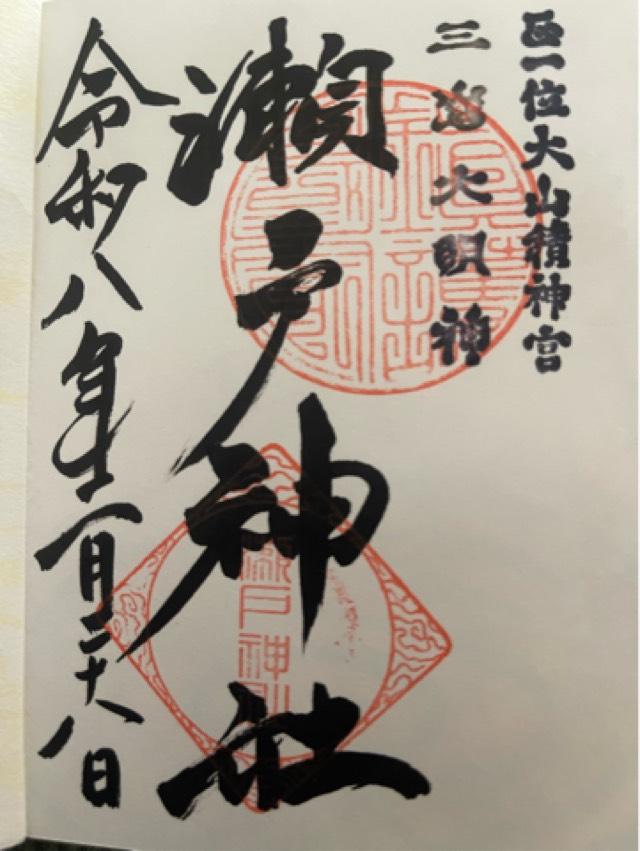 正一位大山積神宮
三島大明神
瀬戸神社
令和八年二月二十八日
瀬戸神社